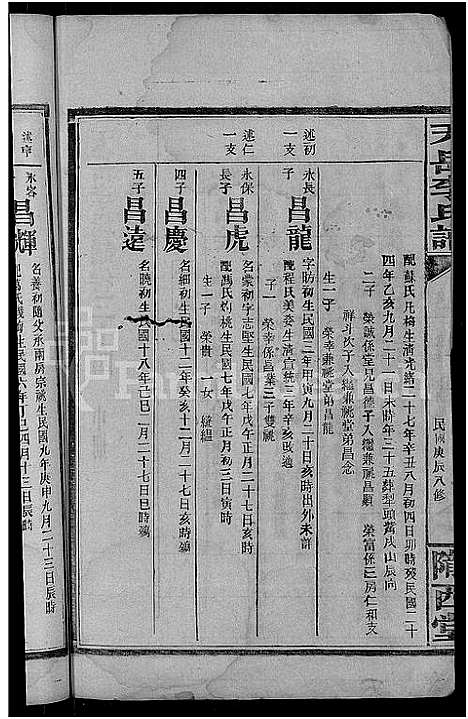 天岳李氏譜
民國庚辰八修
隴西堂
配蘇氏允梅生清光緒二十七年辛丑八月初四日卯時歿民國二十
四年乙亥九月二十一日未時年三十五葬犁頭嘴戌山辰向
二子 榮誠係堂兄昌德子入繼兼祧昌顯 榮富係三房仁和支
祥斗次子入繼兼祧堂弟昌念
生一子 榮幸兼祧堂弟昌龍
述初一支
永長子
昌龍
字昉初生民國三年甲寅九月二十日亥時出外未詳
配程氏美姿生清宣統三年辛亥改適
子一 榮幸係昌業三子雙祧
述仁一支
永保長子
昌虎
名蒙初字志堅生民國七年戊午正月二十七日亥時
配馮氏灼桃生民國七年戊午正月初三日寅時
生一子 榮貴 一女 縫縕
四子
昌慶
名細初生民國十二年癸亥十二月二十七日亥時殤
五子
昌達
名曉初生民國十八年己巳二月二十七日巳時殤
述卓
永容
昌輝
名養初隨父承兩房宗祧生民國九年庚申九月二十三日辰時
配馮氏 梅生民國六年丁巳四月十三日辰時